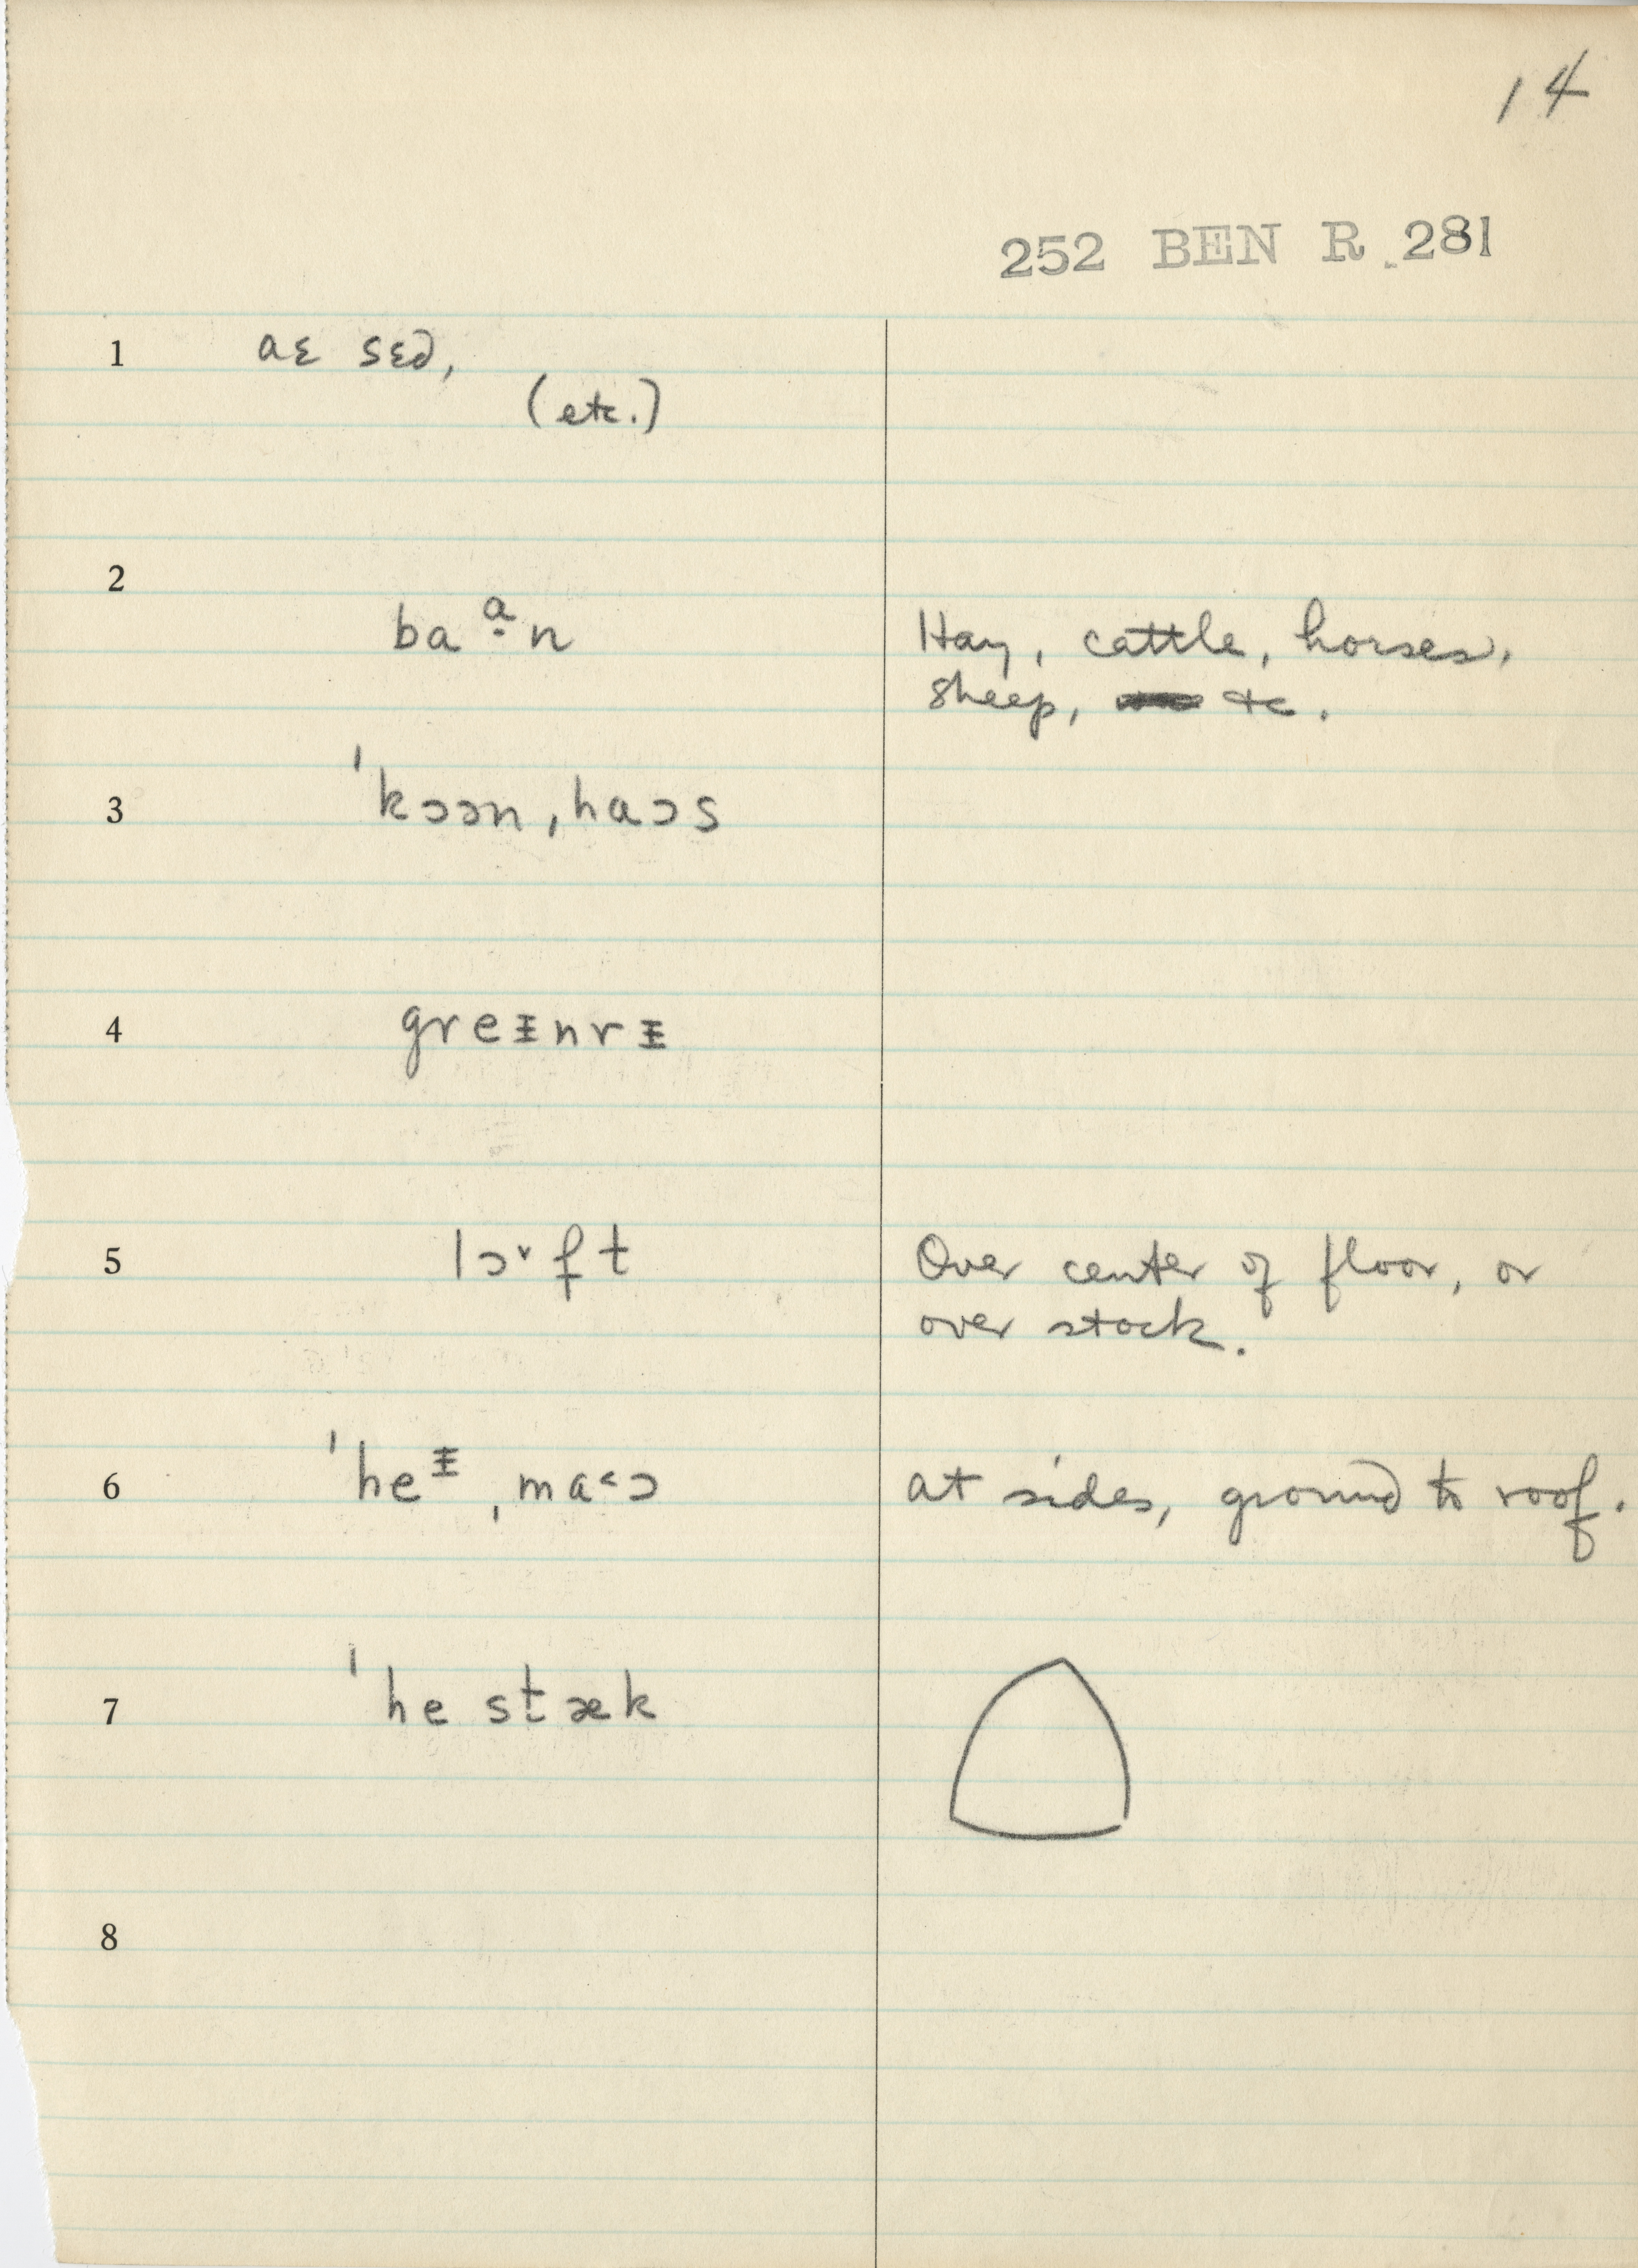 14
252 BEN R 281
1 aɛ sɛd,
(etc.)
2
baᵃ̣n Hay, cattle, horses,
sheep, etc.
3 ˈkɔən, haɔs
4 greᵻnrᵻ
5 lɔ˅ft Over center of floor, or
over stock.
6 ˈheᵻ ˌma˂ɔ at sides, ground to roof.
7 ˈhe stæk
8